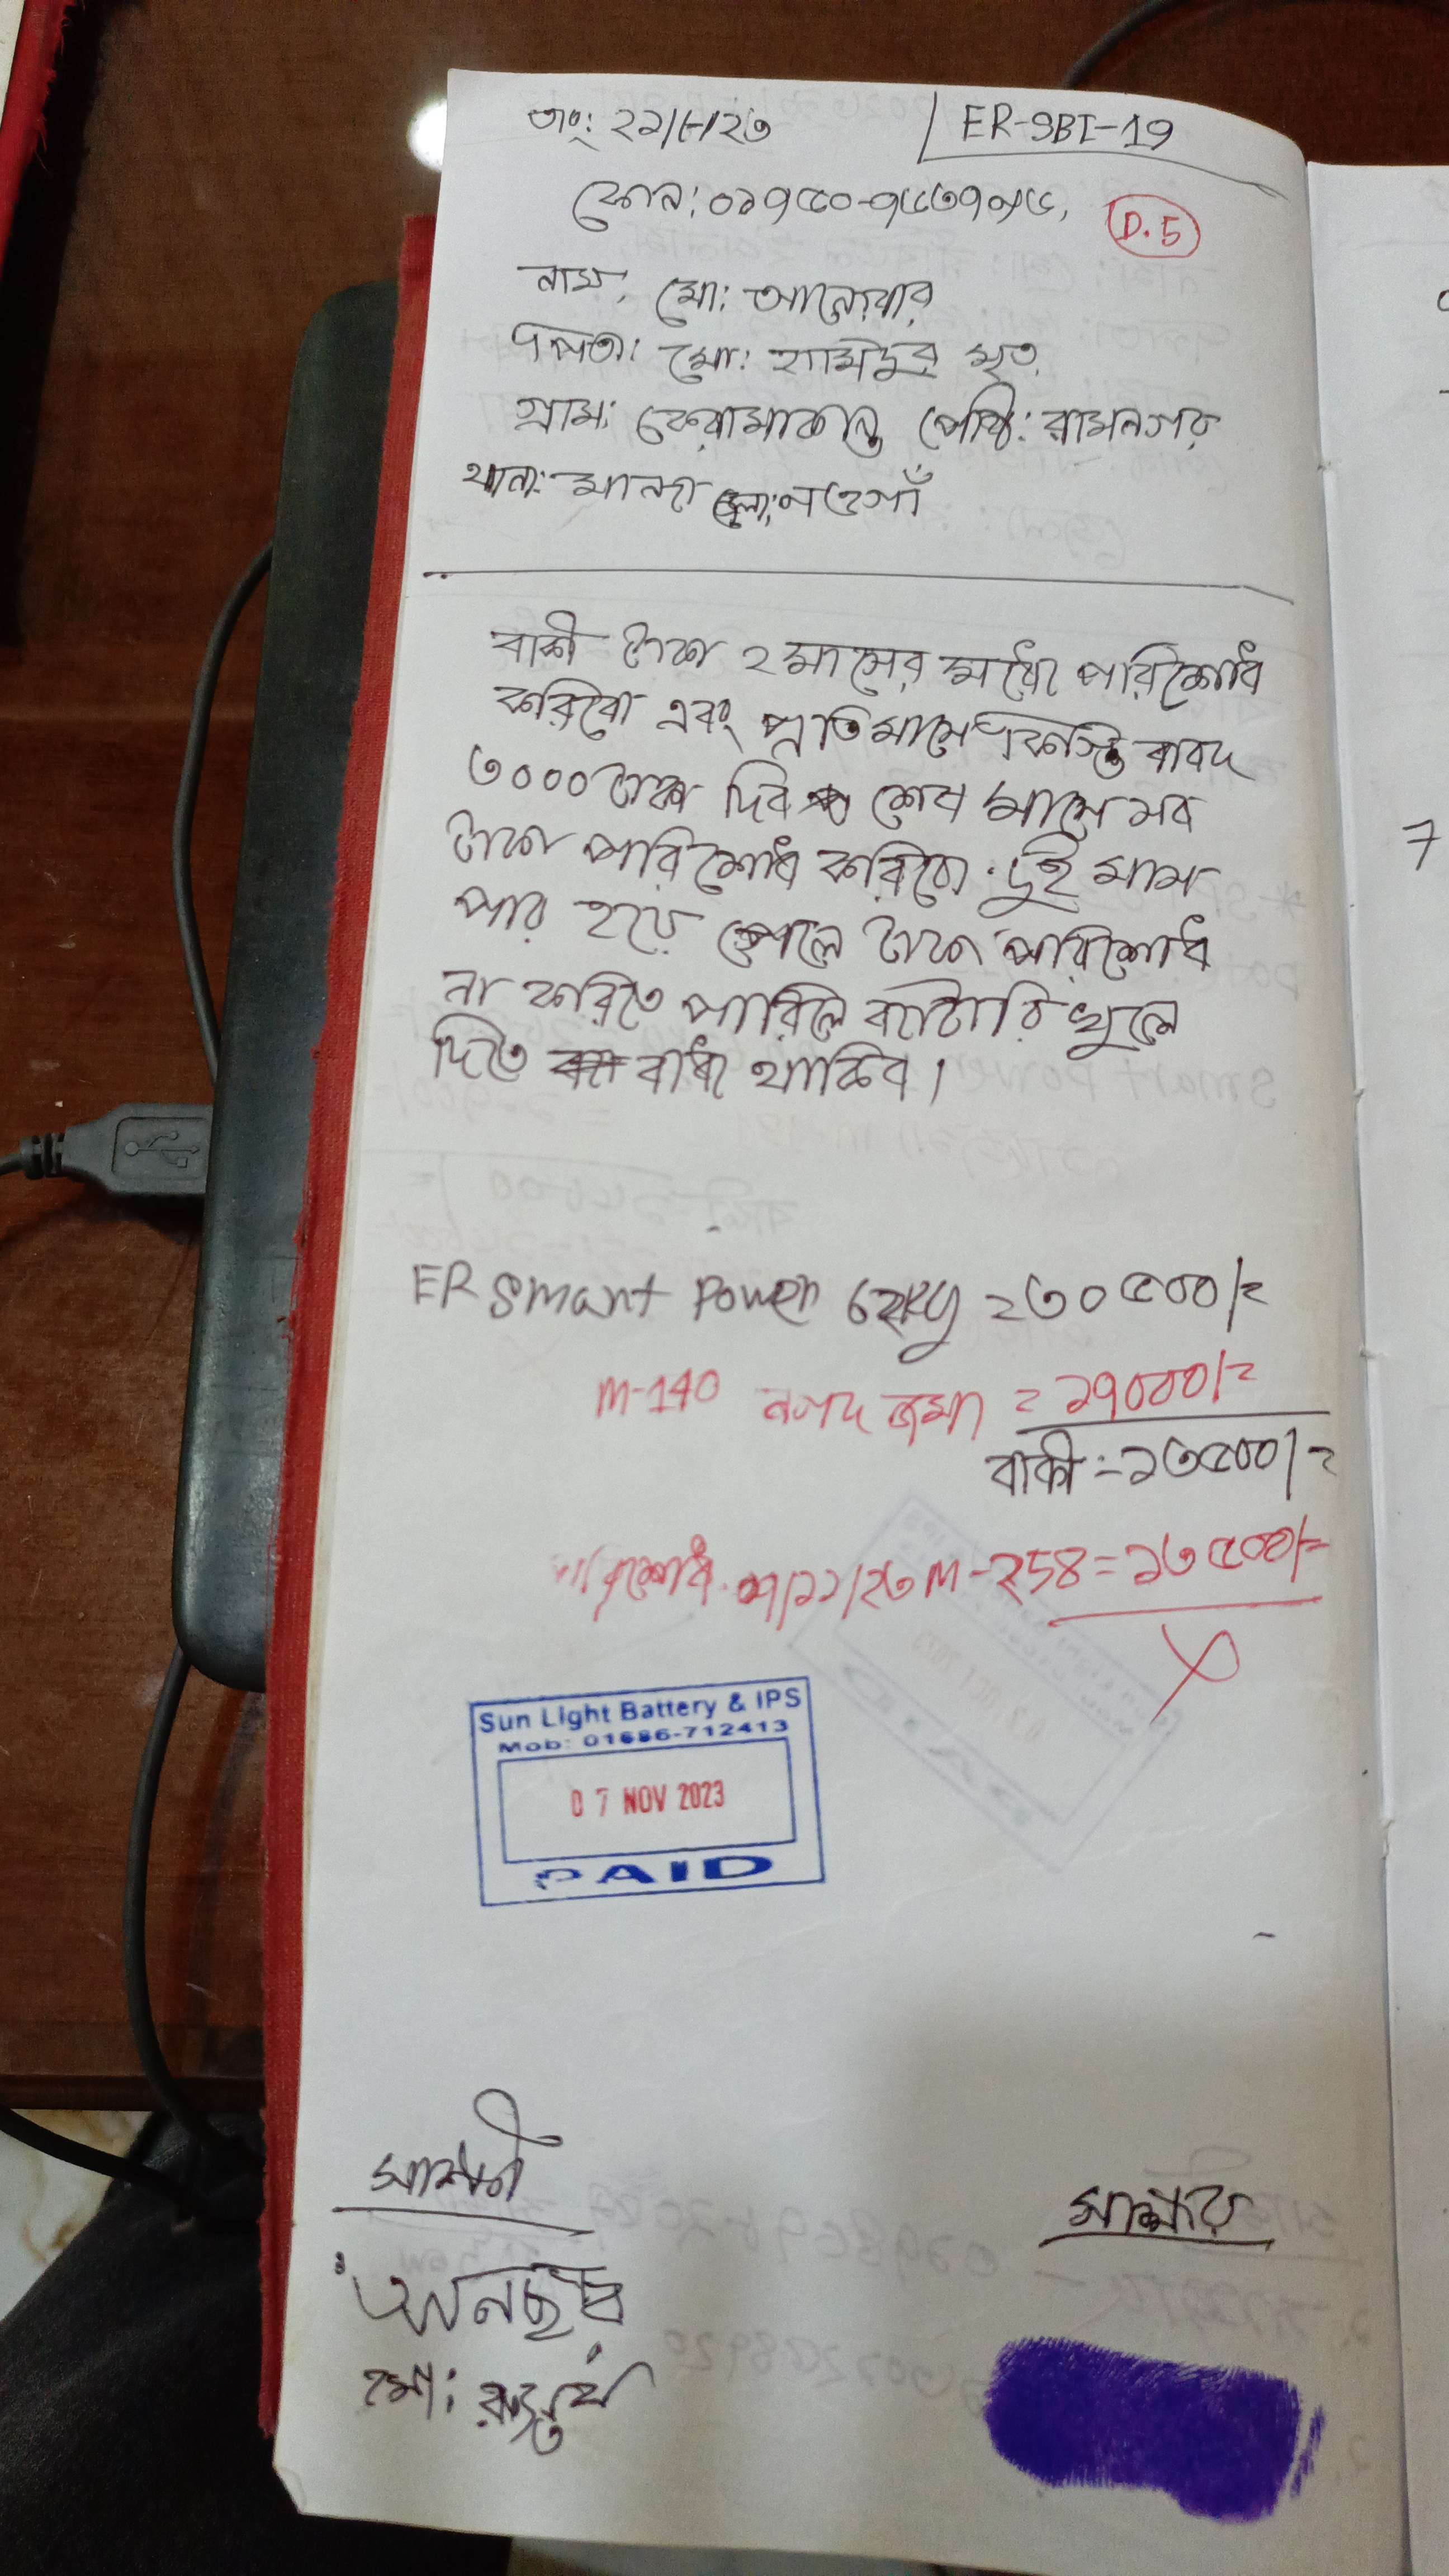 তাং: ২১/৮/২৩
ER-SBI-19
ফোন: ০১৭৫০-৭৮৩৭০৫৮,
D.5
নাম: মো: আনোয়ার
পিতা: মো: হামিদুর মৃত
গ্রাম: পোষ্ট: রামনগর
থানা: মান্দা জেলা: নওগাঁ
বাকী টাকা ২ মাসের মধ্যে পরিশোধ
করিবো এবং প্রতিমাসে কিস্তি বাবদ
৩০০০ টাকা দিব শেষ মাসে সব
টাকা পরিশোধ করিবো. দুই মাস
পার হয়ে গেলে টাকা পরিশোধ
না করিতে পারিলে ব্যাটারি খুলে
দিতে বাধ্য থাকিব।
ER Smart Power 62KG = ৩০৫০০/=
M-140 নগদ জমা = ১৭০০০/=
বাকী = ১৩৫০০/=
পরিশোধ. ০৭/১১/২৩ M-258 = ১৩৫০০/=
Sun Light Battery & IPS
Mob: 01686-712413
07 NOV 2023
PAID
সাক্ষী
সাক্ষর
মো:
7